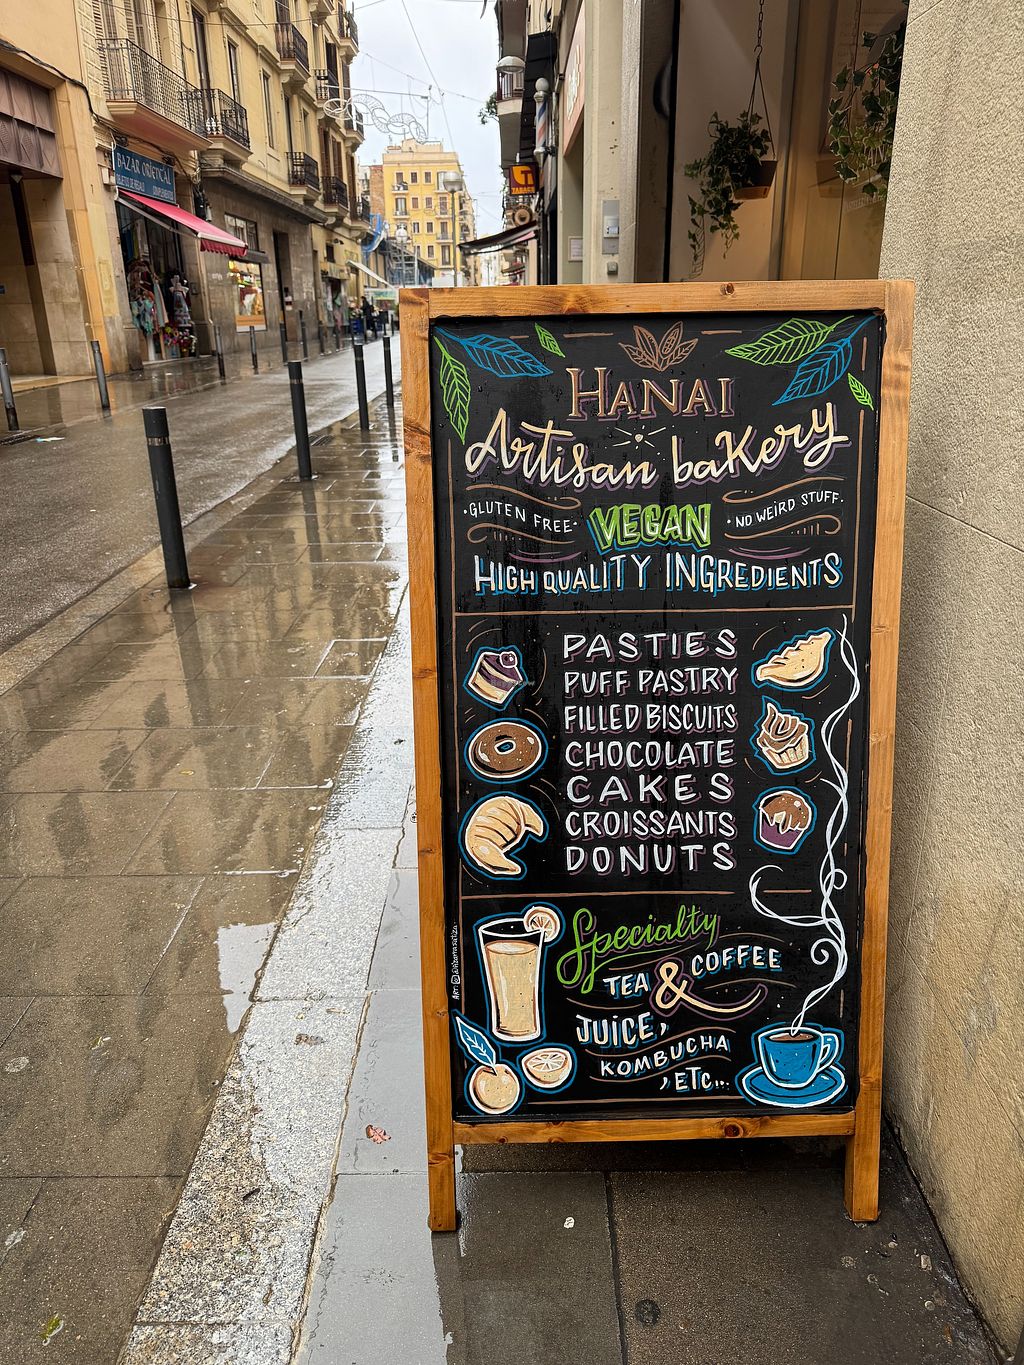 BAZAR ORIENTAL
TABACS
HANAI
Artisan baKery
·GLUTEN FREE·
VEGAN
·NO WEIRD STUFF·
HIGH QUALITY INGREDIENTS
PASTIES
PUFF PASTRY
FILLED BISCUITS
CHOCOLATE
CAKES
CROISSANTS
DONUTS
Specialty
TEA & COFFEE
JUICE,
KOMBUCHA
, ETC...